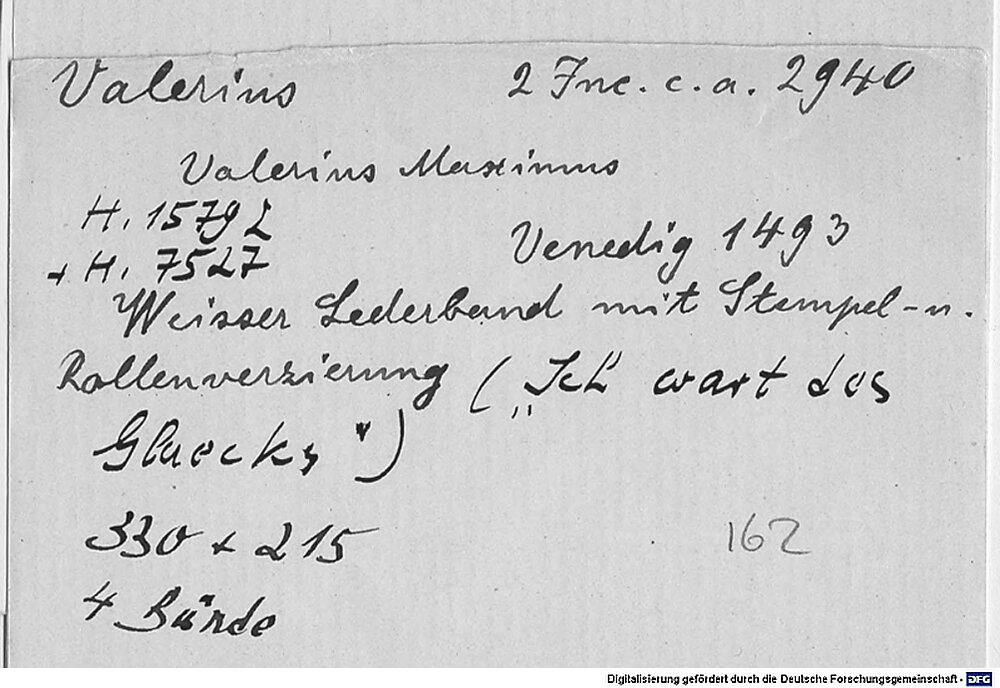 Valerius 2 Inc. c. a. 2940
Valerius Maximus
H. 15792
+ H. 7527 Venedig 1493
Weisser Lederband mit Stempel- u.
Rollenverzierung („Ich wart des
Gluecks")
330 x 215
162
4 Bünde
Digitalisierung gefördert durch die Deutsche Forschungsgemeinschaft - DFG